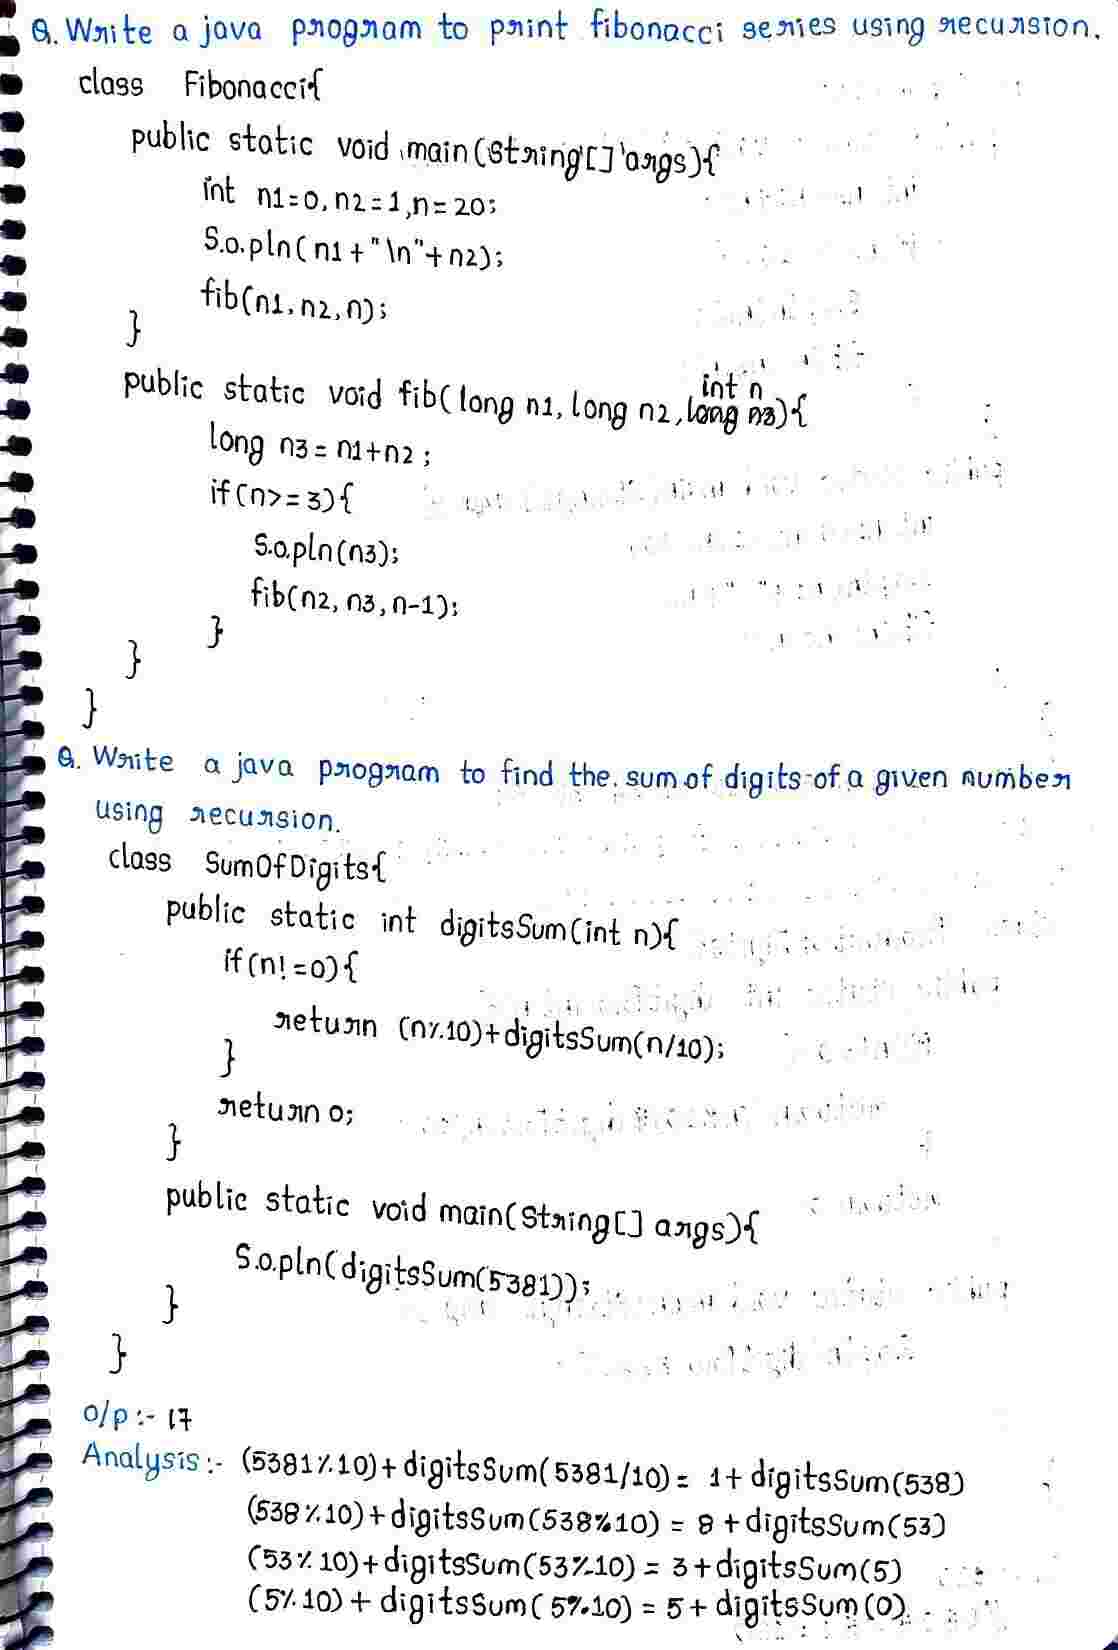 Q. Write a java program to print fibonacci series using recursion.
class Fibonacci{
public static void main(String[] args){
int n1=0, n2=1, n=20;
S.o.pln(n1+"\n"+n2);
fib(n1, n2, n);
}
int n
public static void fib(long n1, long n2, long n3){
long n3 = n1+n2;
if(n>=3){
S.o.pln(n3);
fib(n2, n3, n-1);
}
}
}
Q. Write a java program to find the sum of digits of a given number
using recursion.
class SumOfDigits{
public static int digitsSum(int n){
if(n!=0){
return (n%10)+digitsSum(n/10);
}
return 0;
}
public static void main(String[] args){
S.o.pln(digitsSum(5381));
}
}
o/p :- 17
Analysis :- (5381%10)+digitsSum(5381/10) = 1+digitsSum(538)
(538%10)+digitsSum(538%10) = 8+digitsSum(53)
(53%10)+digitsSum(53%10) = 3+digitsSum(5)
(5%10)+digitsSum(5%10) = 5+digitsSum(0)